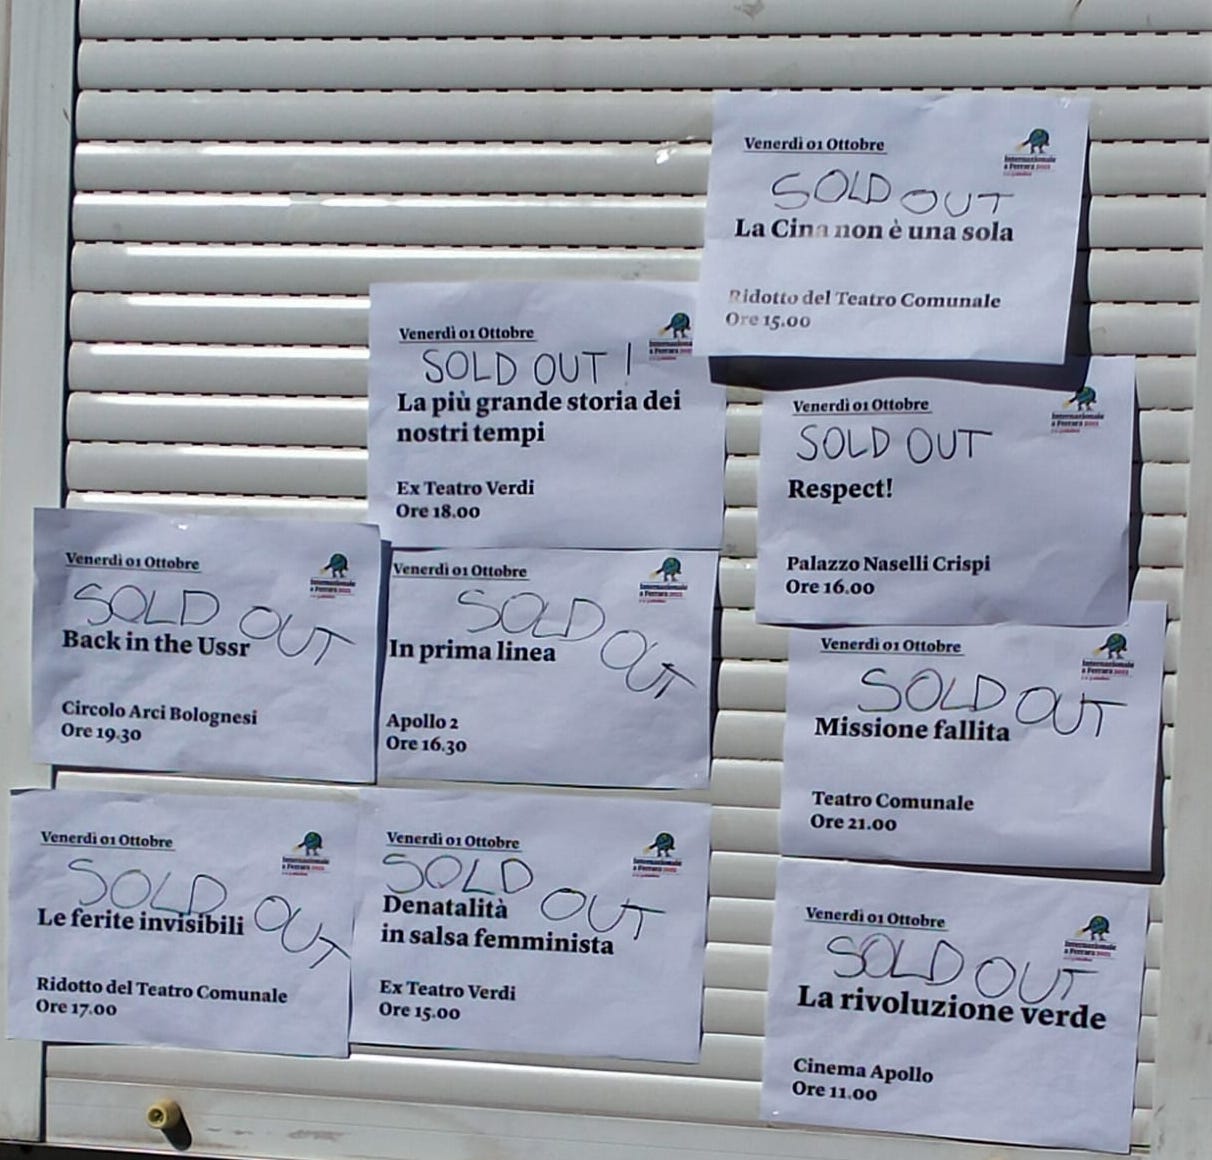 Venerdì 01 Ottobre
Internazionale
a Ferrara 2021
SOLD OUT
La Cina non è una sola
Ridotto del Teatro Comunale
Ore 15.00
Venerdì 01 Ottobre
Internazionale
a Ferrara 2021
SOLD OUT !
La più grande storia dei
nostri tempi
Ex Teatro Verdi
Ore 18.00
Venerdì 01 Ottobre
Internazionale
a Ferrara 2021
SOLD OUT
Respect!
Palazzo Naselli Crispi
Ore 16.00
Venerdì 01 Ottobre
Internazionale
a Ferrara 2021
SOLD OUT
Back in the Ussr
Circolo Arci Bolognesi
Ore 19.30
Venerdì 01 Ottobre
Internazionale
a Ferrara 2021
SOLD OUT
In prima linea
Apollo 2
Ore 16.30
Venerdì 01 Ottobre
Internazionale
a Ferrara 2021
SOLD OUT
Missione fallita
Teatro Comunale
Ore 21.00
Venerdì 01 Ottobre
Internazionale
a Ferrara 2021
SOLD OUT
Le ferite invisibili
Ridotto del Teatro Comunale
Ore 17.00
Venerdì 01 Ottobre
Internazionale
a Ferrara 2021
SOLD OUT
Denatalità
in salsa femminista
Ex Teatro Verdi
Ore 15.00
Venerdì 01 Ottobre
Internazionale
a Ferrara 2021
SOLD OUT
La rivoluzione verde
Cinema Apollo
Ore 11.00